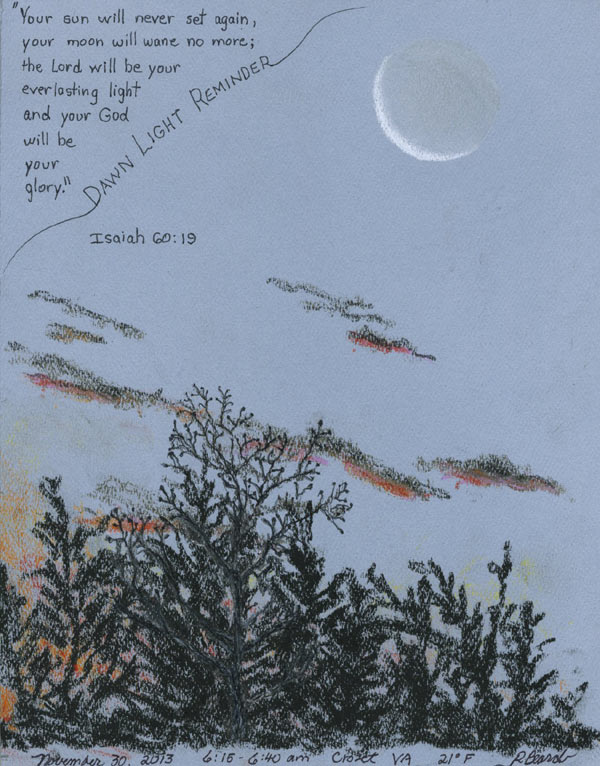 "Your sun will never set again,
your moon will wane no more;
the Lord will be your
everlasting light
and your God
will be
your
glory."
DAWN LIGHT REMINDER
Isaiah 60:19
November 30, 2013 6:15 - 6:40 am Closet VA 21° F